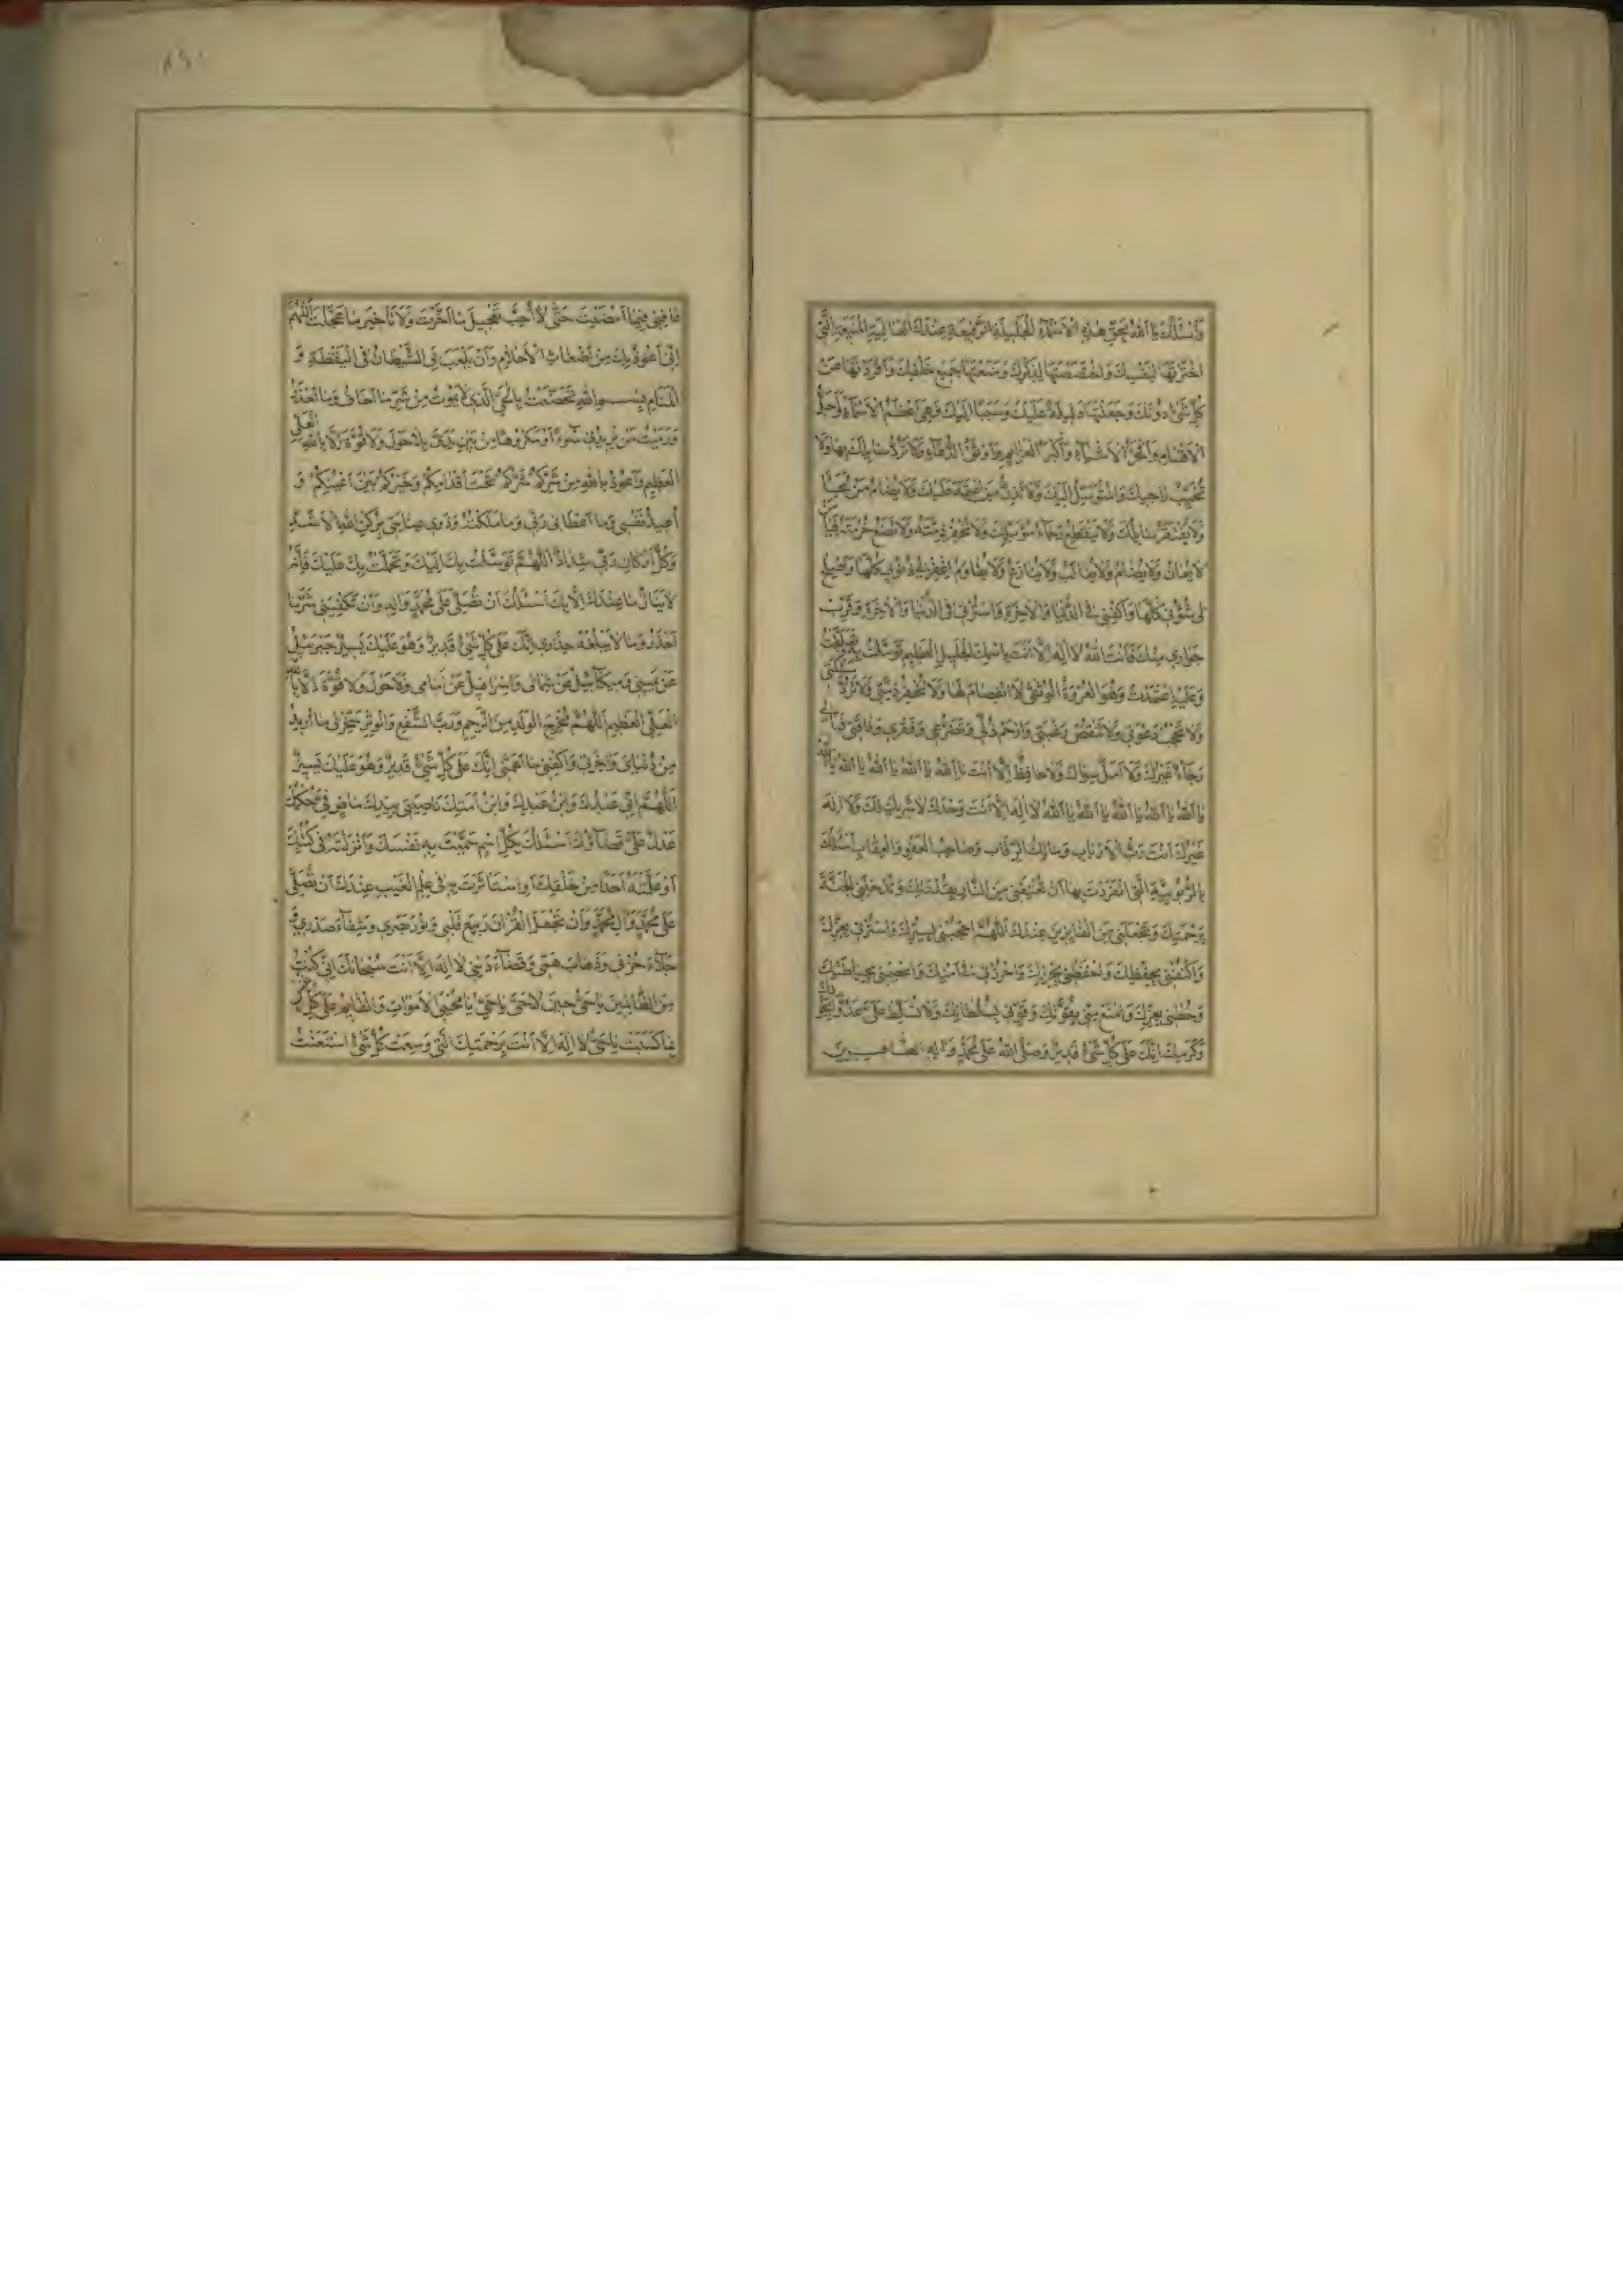 وَاَسْئَلُكَ يَا اَللّٰهُ بِحَقِّ هٰذِهِ الْاَسْمَاءِ الْجَلِيلَةِ الرَّفِيعَةِ عِنْدَكَ الْعَالِيَةِ الْمَنِيعَةِ الَّتِي
اخْتَرْتَهَا لِنَفْسِكَ وَاخْتَصَصْتَهَا لِذِكْرِكَ وَمَنَعْتَهَا جَمِيعَ خَلْقِكَ وَاَفْرَدْتَهَا عَنْ
كُلِّ شَيْءٍ دُونَكَ وَجَعَلْتَهَا دَلِيلَةً عَلَيْكَ وَسَبَبًا اِلَيْكَ وَهِيَ اَعْظَمُ الْاَسْمَاءِ وَاَجَلُّ
الْاَقْسَامِ وَاَفْخَرُ الْاَشْيَاءِ وَاَكْبَرُ الْعَزَائِمِ وَاَوْثَقُ الدُّعَاءِ وَلَا تَرُدُّ سَائِلَكَ بِهَا وَلَا
تُخَيِّبُ رَاجِيكَ وَالْمُتَوَسِّلَ اِلَيْكَ وَلَا يَذِلُّ مَنِ اعْتَمَدَ عَلَيْكَ وَلَا يُضَامُ مَنْ لَجَأَ
وَلَا يَفْتَقِرُ سَائِلُكَ وَلَا يَنْقَطِعُ رَجَاءُ مُؤَمِّلِكَ وَلَا تُخْفَرُ ذِمَّتُهُ وَلَا تُضَيَّعُ حُرْمَتُهُ فَيَا مَنْ
لَا يُعَانُ وَلَا يُضَامُ وَلَا يُغَالَبُ وَلَا يُنَازَعُ وَلَا يُقَاوَمُ اغْفِرْ لِي ذُنُوبِي كُلَّهَا وَاَصْلِحْ
لِي شُؤُنِي كُلَّهَا وَاكْفِنِي فِي الدُّنْيَا وَالْاٰخِرَةِ وَاسْتُرْنِي فِي الدُّنْيَا وَالْاٰخِرَةِ وَقَرِّبْ
جِوَارِي مِنْكَ فَاَنْتَ اللّٰهُ لَا اِلٰهَ اِلَّا اَنْتَ بِاسْمِكَ الْجَلِيلِ الْعَظِيمِ تَوَسَّلْتُ وَبِهِ تَعَلَّقْتُ
وَعَلَيْهِ اعْتَمَدْتُ وَهُوَ الْعُرْوَةُ الْوُثْقٰى لَا انْفِصَامَ لَهَا وَلَا تُخْفِرْ ذِمَّتِي وَلَا تَرُدَّ مَسْئَلَتِي
وَلَا تَحْجُبْ دَعْوَتِي وَلَا تَنْقُصْ رَغْبَتِي وَارْحَمْ ذُلِّي وَتَضَرُّعِي وَفَقْرِي وَفَاقَتِي فَمَا لِي
رَجَاءٌ غَيْرُكَ وَلَا اَمَلٌ سِوَاكَ وَلَا حَافِظٌ اِلَّا اَنْتَ يَا اَللّٰهُ يَا اَللّٰهُ يَا اَللّٰهُ يَا اَللّٰهُ يَا اَللّٰهُ
يَا اَللّٰهُ يَا اَللّٰهُ يَا اَللّٰهُ يَا اَللّٰهُ لَا اِلٰهَ اِلَّا اَنْتَ وَحْدَكَ لَا شَرِيكَ لَكَ وَلَا اِلٰهَ
غَيْرُكَ اَنْتَ رَبُّ الْاَرْبَابِ وَمَالِكُ الرِّقَابِ وَصَاحِبُ الْعَفْوِ وَالْعِقَابِ اَسْئَلُكَ
بِالرُّبُوبِيَّةِ الَّتِي انْفَرَدْتَ بِهَا اَنْ تُعْتِقَنِي مِنَ النَّارِ بِقُدْرَتِكَ وَتُدْخِلَنِي الْجَنَّةَ
بِرَحْمَتِكَ وَتَجْعَلَنِي مِنَ الْفَائِزِينَ عِنْدَكَ اَللّٰهُمَّ احْجُبْنِي بِسِتْرِكَ وَاسْتُرْنِي بِعِزِّكَ
وَاكْنُفْنِي بِحِفْظِكَ وَاحْفَظْنِي بِحِرْزِكَ وَاحْرُزْنِي فِي اَمْنِكَ وَاعْصِمْنِي بِحِيَاطَتِكَ
وَحُطْنِي بِعِزِّكَ وَامْنَعْ مِنِّي بِقُوَّتِكَ وَقَوِّنِي بِسُلْطَانِكَ وَلَا تُسَلِّطْ عَلَيَّ عَدُوًّا بِجُودِكَ
وَكَرَمِكَ اِنَّكَ عَلٰى كُلِّ شَيْءٍ قَدِيرٌ وَصَلَّى اللّٰهُ عَلٰى مُحَمَّدٍ وَاٰلِهِ الطَّاهِرِينَ
عَافِنِي فِيمَا اَمْضَيْتَ حَتّٰى لَا اُحِبَّ تَعْجِيلَ مَا اَخَّرْتَ وَلَا تَأْخِيرَ مَا عَجَّلْتَ اَللّٰهُمَّ
اِنِّي اَعُوذُ بِكَ مِنْ اَضْغَاثِ الْاَحْلَامِ وَاَنْ يَلْعَبَ بِيَ الشَّيْطَانُ فِي الْيَقْظَةِ وَ
الْمَنَامِ بِسْمِ اللّٰهِ تَحَصَّنْتُ بِالْحَيِّ الَّذِي لَا يَمُوتُ مِنْ شَرِّ مَا اَخَافُ وَمَا اَحْذَرُ
وَرَمَيْتُ مَنْ يُرِيدُ بِي سُوءً اَوْ مَكْرُوهًا مِنْ بَيْنِ يَدَيَّ بِلَا حَوْلَ وَلَا قُوَّةَ اِلَّا بِاللّٰهِ الْعَلِيِّ
الْعَظِيمِ وَاَعُوذُ بِاللّٰهِ مِنْ شَرِّكُمْ شَرُّكُمْ تَحْتَ اَقْدَامِكُمْ وَخَيْرُكُمْ بَيْنَ اَعْيُنِكُمْ وَ
اُعِيذُ نَفْسِي وَمَا اَعْطَانِي رَبِّي وَمَا مَلَكَتْهُ وَذَوِي عِنَايَتِي بِرُكْنِ اللّٰهِ الْاَشَدِّ
وَكُلُّ اَرْكَانِ رَبِّي شِدَادٌ اَللّٰهُمَّ تَوَسَّلْتُ بِكَ اِلَيْكَ وَتَحَمَّلْتُ بِكَ عَلَيْكَ فَاِنَّهُ
لَا يُنَالُ مَا عِنْدَكَ اِلَّا بِكَ اَسْئَلُكَ اَنْ تُصَلِّيَ عَلٰى مُحَمَّدٍ وَاٰلِهِ وَاَنْ تَكْفِيَنِي شَرَّ مَا
اَحْذَرُ وَمَا لَا يَبْلُغُهُ حِذَارِي اِنَّكَ عَلٰى كُلِّ شَيْءٍ قَدِيرٌ وَهُوَ عَلَيْكَ يَسِيرٌ جَبْرَئِيلُ
عَنْ يَمِينِي وَمِيكَائِيلُ عَنْ شِمَالِي وَاِسْرَافِيلُ عَنْ اَمَامِي وَلَا حَوْلَ وَلَا قُوَّةَ اِلَّا بِاللّٰهِ
الْعَلِيِّ الْعَظِيمِ اَللّٰهُمَّ مُخْرِجَ الْوَلَدِ مِنَ الرَّحِمِ وَرَبَّ الشَّفْعِ وَالْوَتْرِ سَخِّرْ لِي مَا اُرِيدُ
مِنْ دُنْيَايَ وَاٰخِرَتِي وَاكْفِنِي مَا اَهَمَّنِي اِنَّكَ عَلٰى كُلِّ شَيْءٍ قَدِيرٌ وَهُوَ عَلَيْكَ يَسِيرٌ
اَللّٰهُمَّ اِنِّي عَبْدُكَ وَابْنُ عَبْدِكَ وَابْنُ اَمَتِكَ نَاصِيَتِي بِيَدِكَ مَاضٍ فِيَّ حُكْمُكَ
عَدْلٌ عَلَيَّ قَضَاؤُكَ اَسْئَلُكَ بِكُلِّ اسْمٍ سَمَّيْتَ بِهِ نَفْسَكَ وَاَنْزَلْتَهُ فِي كِتَابِكَ
اَوْ عَلَّمْتَهُ اَحَدًا مِنْ خَلْقِكَ اَوِ اسْتَأْثَرْتَ بِهِ فِي عِلْمِ الْغَيْبِ عِنْدَكَ اَنْ تُصَلِّيَ
عَلٰى مُحَمَّدٍ وَاٰلِ مُحَمَّدٍ وَاَنْ تَجْعَلَ الْقُرْاٰنَ رَبِيعَ قَلْبِي وَنُورَ بَصَرِي وَشِفَاءَ صَدْرِي وَ
جَلَاءَ حُزْنِي وَذَهَابَ هَمِّي وَقَضَاءَ دَيْنِي لَا اِلٰهَ اِلَّا اَنْتَ سُبْحَانَكَ اِنِّي كُنْتُ
مِنَ الظَّالِمِينَ يَا حَيُّ حِينَ لَا حَيَّ يَا حَيُّ يَا مُحْيِيَ الْاَمْوَاتِ وَالْقَائِمُ عَلٰى كُلِّ نَفْسٍ
بِمَا كَسَبَتْ يَا حَيُّ لَا اِلٰهَ اِلَّا اَنْتَ بِرَحْمَتِكَ الَّتِي وَسِعَتْ كُلَّ شَيْءٍ اسْتَعَنْتُ